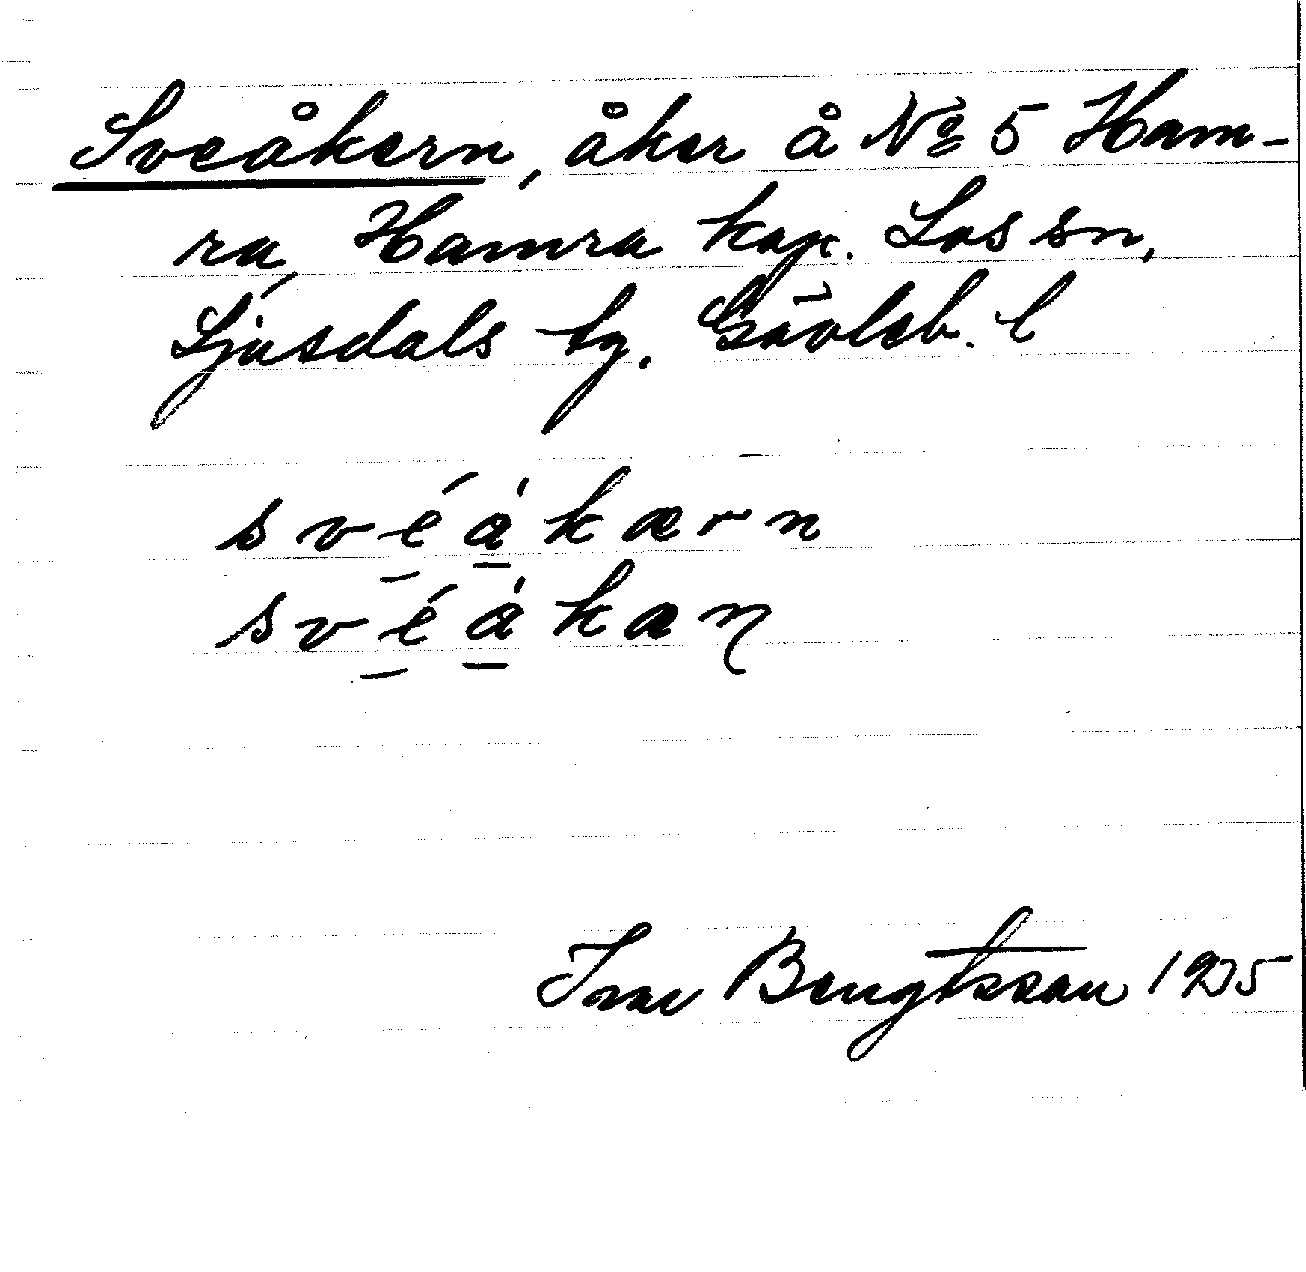 Sveåkern, åker å No 5 Ham-
ra, Hamra kap. Los sn,
Ljusdals tg. Gävleb. l
své̱á̱kærn
své̱á̱kæɳ
Ivar Bengtsson 1935